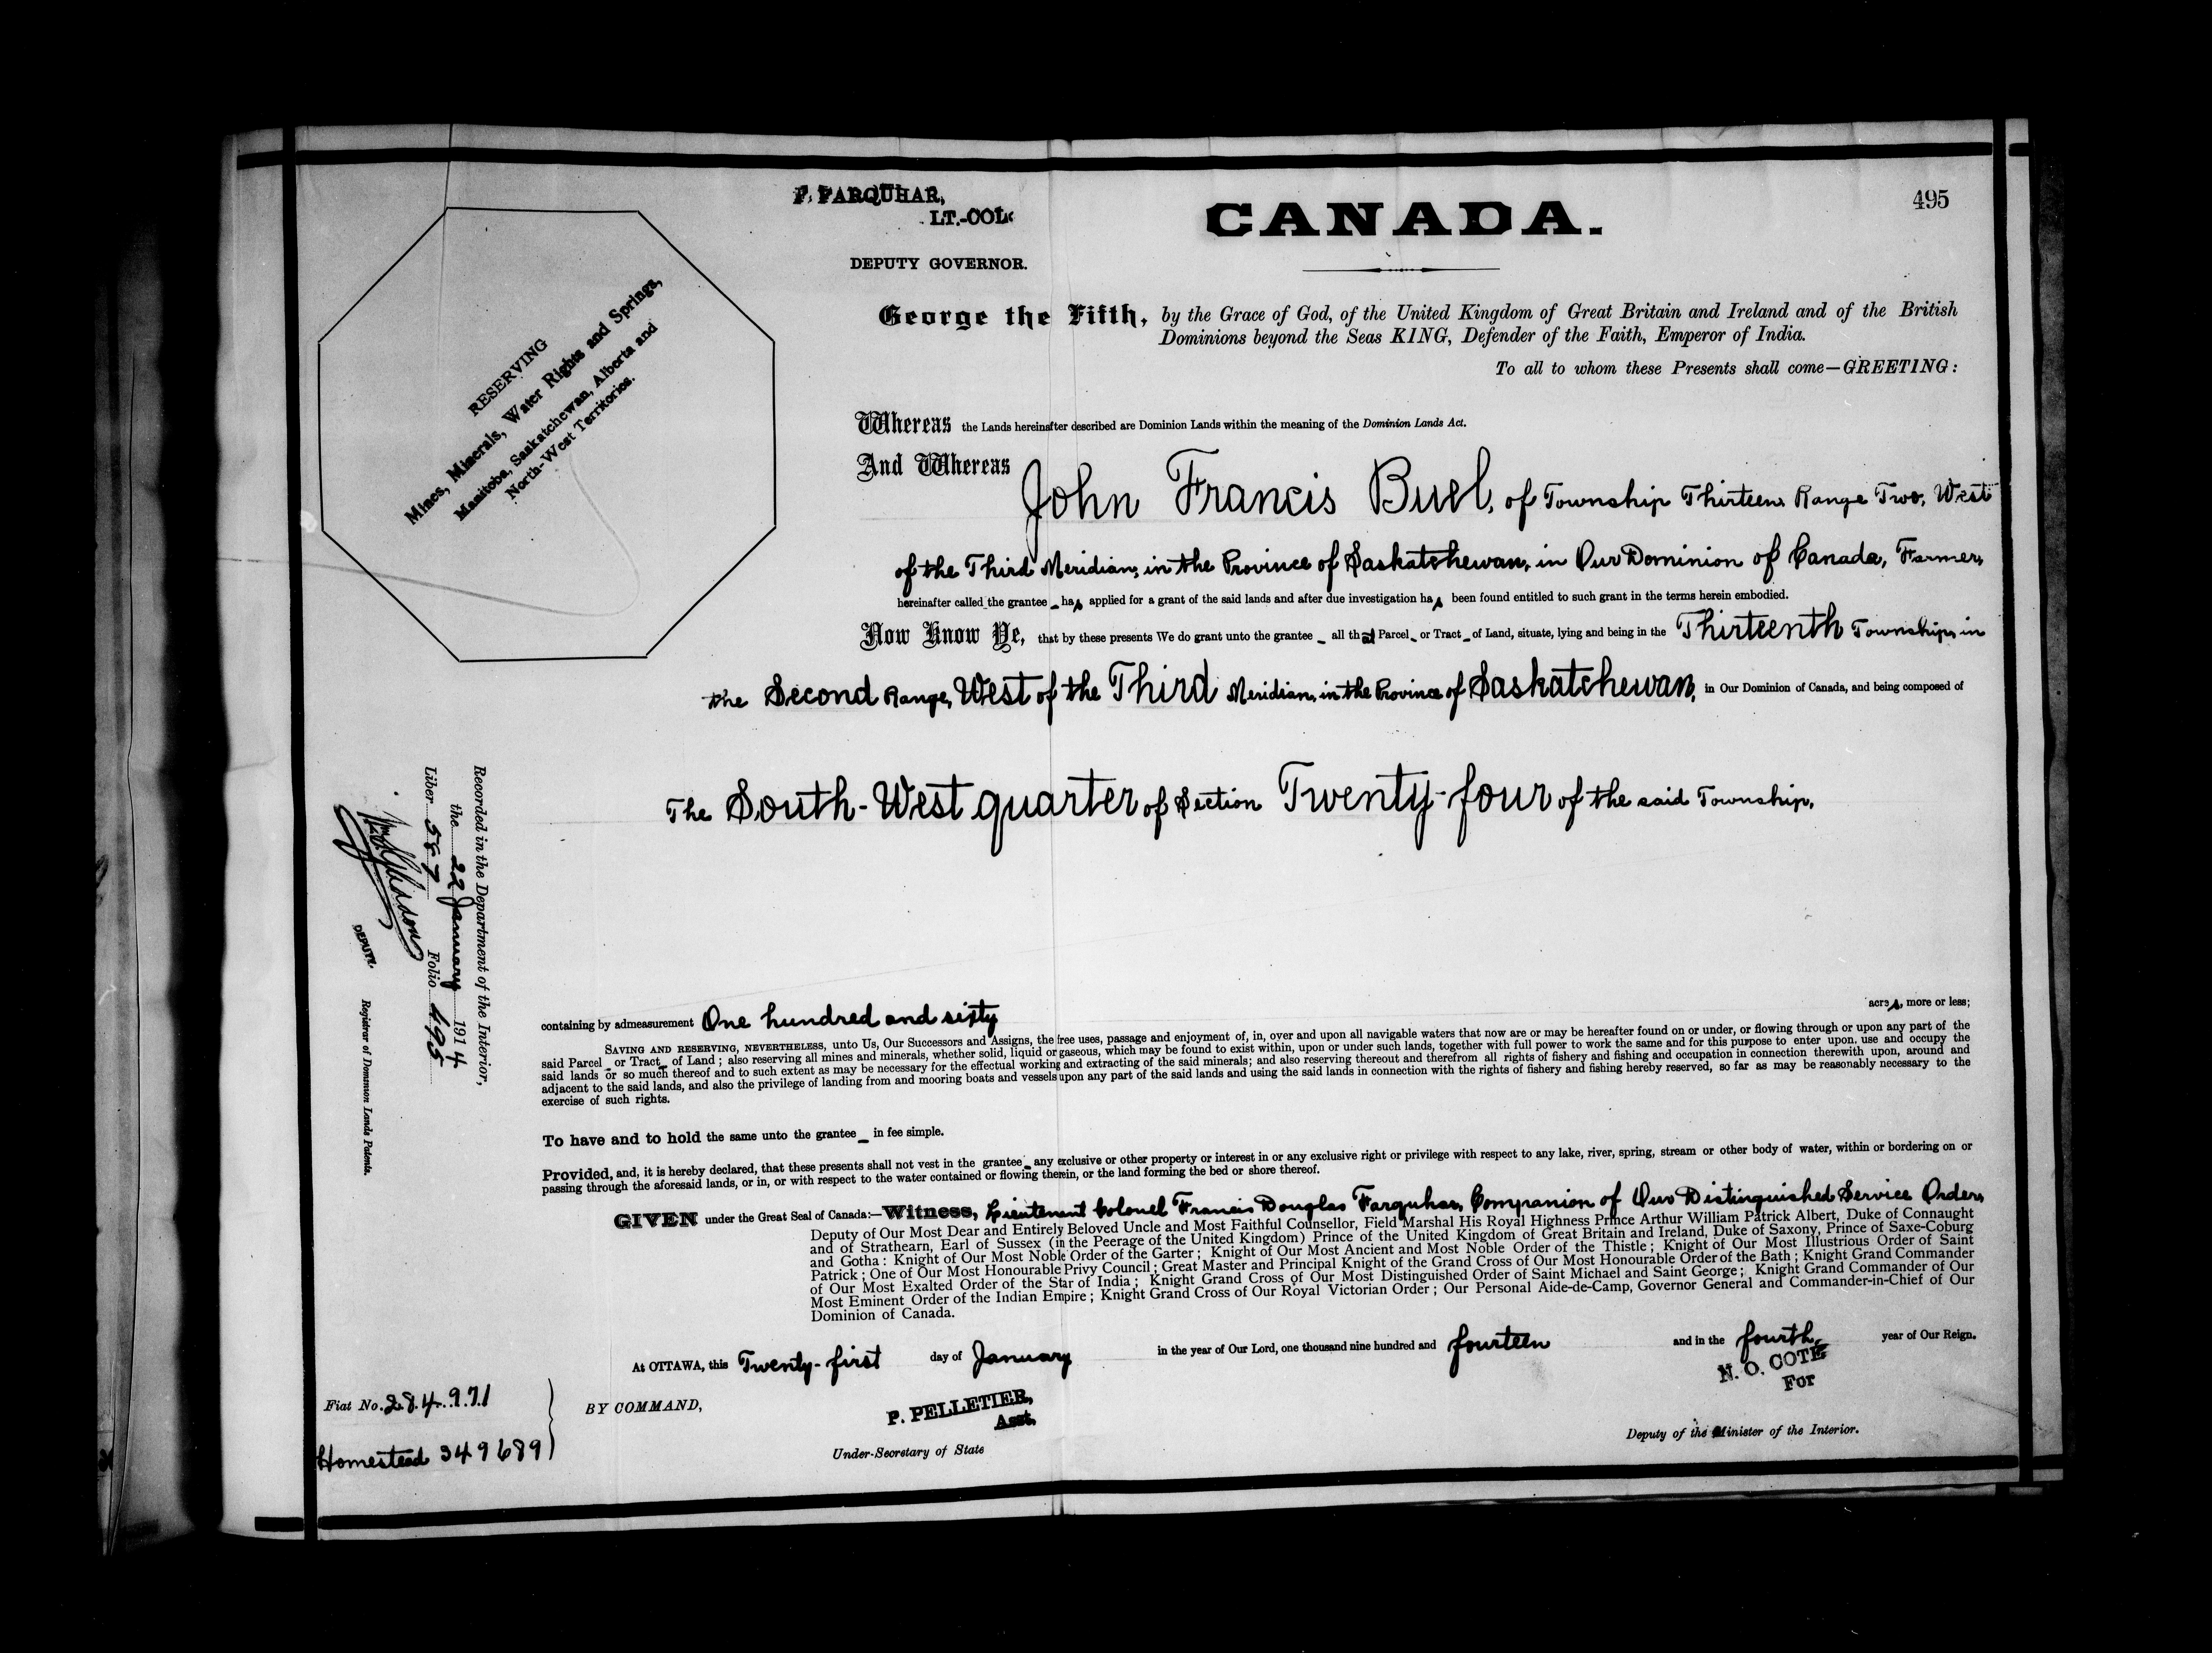 495
F. FARQUHAR,
LT.-COL.
DEPUTY GOVERNOR.
CANADA.
RESERVING
Mines, Minerals, Water Rights and Springs,
Manitoba, Saskatchewan, Alberta and
North-West Territories.
George the Fifth, by the Grace of God, of the United Kingdom of Great Britain and Ireland and of the British
Dominions beyond the Seas KING, Defender of the Faith, Emperor of India.
To all to whom these Presents shall come—GREETING:
Whereas the Lands hereinafter described are Dominion Lands within the meaning of the Dominion Lands Act.
And Whereas John Francis Buel, of Township Thirteen, Range Two, West
of the Third Meridian, in the Province of Saskatchewan, in Our Dominion of Canada, Farmer,
hereinafter called the grantee_ has applied for a grant of the said lands and after due investigation has been found entitled to such grant in the terms herein embodied.
Now Know Ye, that by these presents We do grant unto the grantee_ all that Parcel_ or Tract_ of Land, situate, lying and being in the Thirteenth Township, in
the Second Range, West of the Third Meridian, in the Province of Saskatchewan, in Our Dominion of Canada, and being composed of
The South-West quarter of Section Twenty-four of the said Township,
Recorded in the Department of the Interior,
the 22 January 1914
Liber 587 Folio 495
DEPUTY.
Registrar of Dominion Lands Patents.
containing by admeasurement One hundred and sixty acres, more or less;
SAVING AND RESERVING, NEVERTHELESS, unto Us, Our Successors and Assigns, the free uses, passage and enjoyment of, in, over and upon all navigable waters that now are or may be hereafter found on or under, or flowing through or upon any part of the
said Parcel_ or Tract_ of Land; also reserving all mines and minerals, whether solid, liquid or gaseous, which may be found to exist within, upon or under such lands, together with full power to work the same and for this purpose to enter upon, use and occupy the
said lands or so much thereof and to such extent as may be necessary for the effectual working and extracting of the said minerals; and also reserving thereout and therefrom all rights of fishery and fishing and occupation in connection therewith upon, around and
adjacent to the said lands, and also the privilege of landing from and mooring boats and vessels upon any part of the said lands and using the said lands in connection with the rights of fishery and fishing hereby reserved, so far as may be reasonably necessary to the
exercise of such rights.
To have and to hold the same unto the grantee_ in fee simple.
Provided, and, it is hereby declared, that these presents shall not vest in the grantee_ any exclusive or other property or interest in or any exclusive right or privilege with respect to any lake, river, spring, stream or other body of water, within or bordering on or
passing through the aforesaid lands, or in, or with respect to the water contained or flowing therein, or the land forming the bed or shore thereof.
GIVEN under the Great Seal of Canada:—Witness, Lieutenant Colonel Francis Douglas Farquhar, Companion of Our Distinguished Service Order,
Deputy of Our Most Dear and Entirely Beloved Uncle and Most Faithful Counsellor, Field Marshal His Royal Highness Prince Arthur William Patrick Albert, Duke of Connaught
and of Strathearn, Earl of Sussex (in the Peerage of the United Kingdom) Prince of the United Kingdom of Great Britain and Ireland, Duke of Saxony, Prince of Saxe-Coburg
and Gotha: Knight of Our Most Noble Order of the Garter; Knight of Our Most Ancient and Most Noble Order of the Thistle; Knight of Our Most Illustrious Order of Saint
Patrick; One of Our Most Honourable Privy Council; Great Master and Principal Knight of the Grand Cross of Our Most Honourable Order of the Bath; Knight Grand Commander
of Our Most Exalted Order of the Star of India; Knight Grand Cross of Our Most Distinguished Order of Saint Michael and Saint George; Knight Grand Commander of Our
Most Eminent Order of the Indian Empire; Knight Grand Cross of Our Royal Victorian Order; Our Personal Aide-de-Camp, Governor General and Commander-in-Chief of Our
Dominion of Canada.
At OTTAWA, this Twenty-first day of January in the year of Our Lord, one thousand nine hundred and fourteen and in the fourth year of Our Reign.
Fiat No. 284971
Homestead 349689
BY COMMAND,
P. PELLETIER,
Asst.
Under-Secretary of State
N. O. COTE
For
Deputy of the Minister of the Interior.